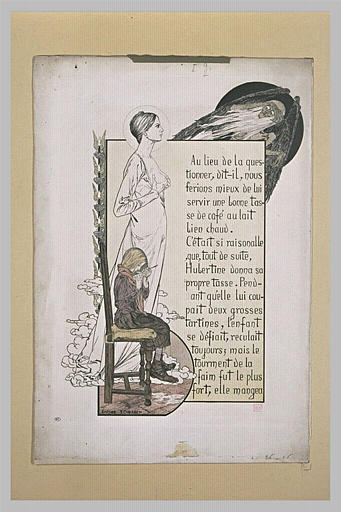 Au lieu de la ques-
tionner, dit-il, nous
ferions mieux de lui
servir une bonne tas-
se de café au lait
bien chaud.
C'était si raisonable
que, tout de suite,
Hubertine donna sa
propre tasse. Pend-
ant qu'elle lui cou-
pait deux grosses
tartines, l'enfant
se défiait, reculait
toujours; mais le
tourment de la
faim fut le plus
fort, elle mangea